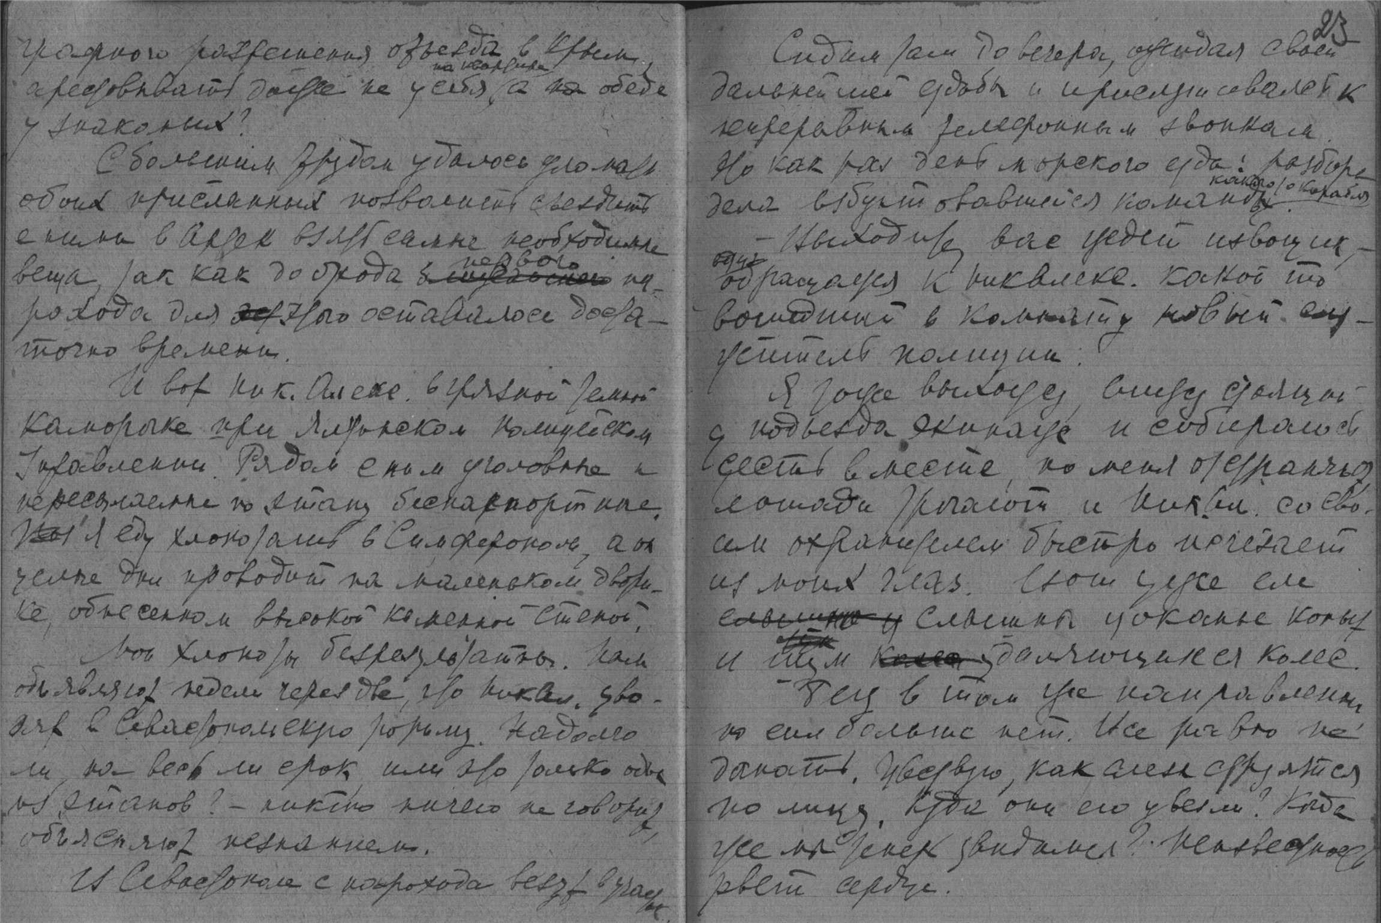 грамного разрешения отъезда в Крым,
арестовывать даже не у себя на квартире, а на обеде
у знакомых?
С большим трудом удалось уломать
обоих присланных позволить съездить
с ними в Артек взять самые необходимые
вещи, так как до отхода первого па-
рохода для этого оставалось доста-
точно времени.
И вот Ник. Алекс. в грязной темной
каморке при Ялтинском Полицейском
Управлении. Рядом с ним уголовные и
пересылаемые по этапу беспаспортные.
Я еду хлопотать в Симферополь, а он
целые дни проводит на маленьком двори-
ке, обнесенном высокой каменной стеной.
Мои хлопоты безрезультатны. Нам
объявляют недели через две, что Ник. Ал. уво-
зят в Севастопольскую тюрьму. Надолго
ли, на весь ли срок или это только один
из этапов? – никто ничего не говорит,
объясняют незнанием.
В Севастополе с парохода везут в участок.
23
Сидим там до вечера, ожидая своей
дальнейшей судьбы и прислушиваясь к
непрерывным телефонным звонкам.
Но как раз день морского суда: разбор
дела взбунтовавшейся команды какого то корабля.
– Выходите, вас ждет извозчик, –
обращается к Ник. Алекс. какой то
вошедший в комнату новый слу-
житель полиции.
Я тоже выхожу, вижу стоящий
у подъезда экипаж и собираюсь
сесть вместе, но меня отстраняют,
лошади трогают и Ник. Ал. со сво-
им охранителем быстро исчезает
из моих глаз. Вот уже еле
слышны цоканье копыт
и шум удаляющихся колес.
Бегу в том же направлении,
но сил больше нет. Все равно не
догнать. Чувствую, как слезы струятся
по лицу. Куда они его увезли? Когда
же мы теперь увидимся? Неизвестность
рвет сердце.